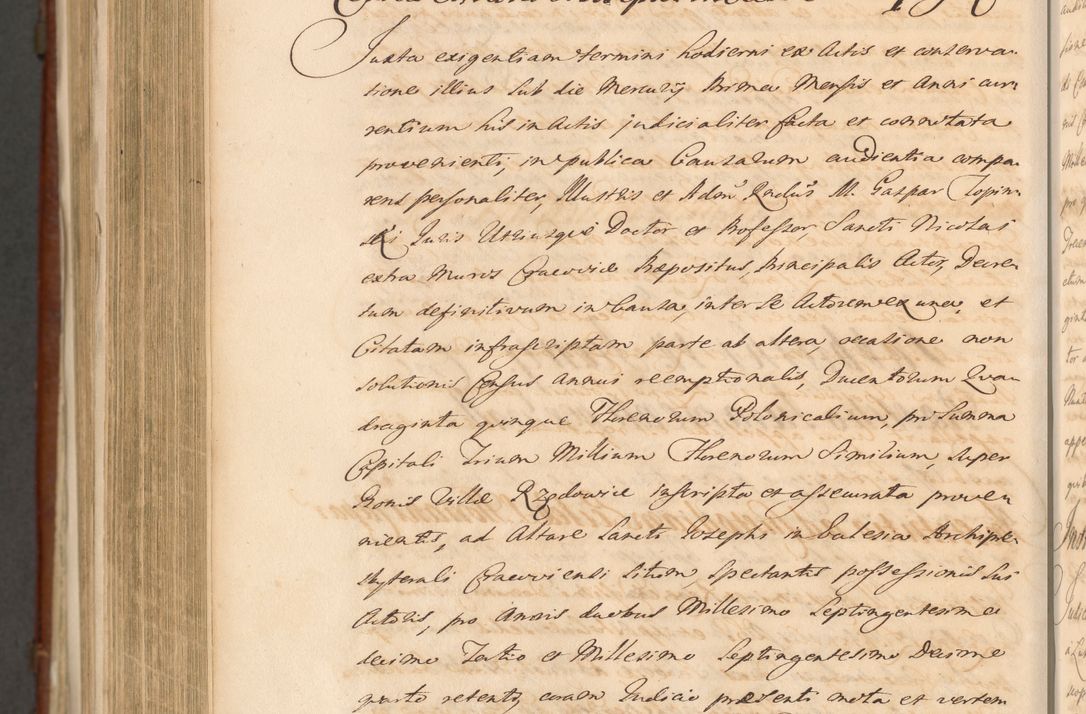 Juxta exigentiam termini hodierni ex Actis et conserva-
tione illius sub die Mercurij prima Mensis et Anni curr-
rentium his in Actis judicialiter facta et connotata
provenienti, in publica Causarum audientia compa-
rens personaliter, Illustris et Adm Rndus M. Gaspar
Juris Utriusque Doctor et Professor, Sancti Nicolai
extra Muros Cracoviæ Præpositus, Principalis Actor, Decre-
tum definitivum in Causa, inter se Actorem ex una, et
Citatam infrascriptam parte ab altera, occasione non
solutionis Census annui reemptionalis, Ducentorum Qua-
draginta quinque Florenorum Polonicalium, pro Summa
Capitali Trium Millium Florenorum Similium, super
Bonis Villæ Rządowice inscripta et assecurata prove-
nientis, ad Altare Sancti Josephi in Ecclesia Archipre-
sbyterali Cracoviensi situm spectantis possessionis sui
Actoris, pro Annis duobus Millesimo Septingentesimo
decimo Tertio et Millesimo Septingentesimo Decimo
quarto retenti, coram Judicio præsenti mota et vertem